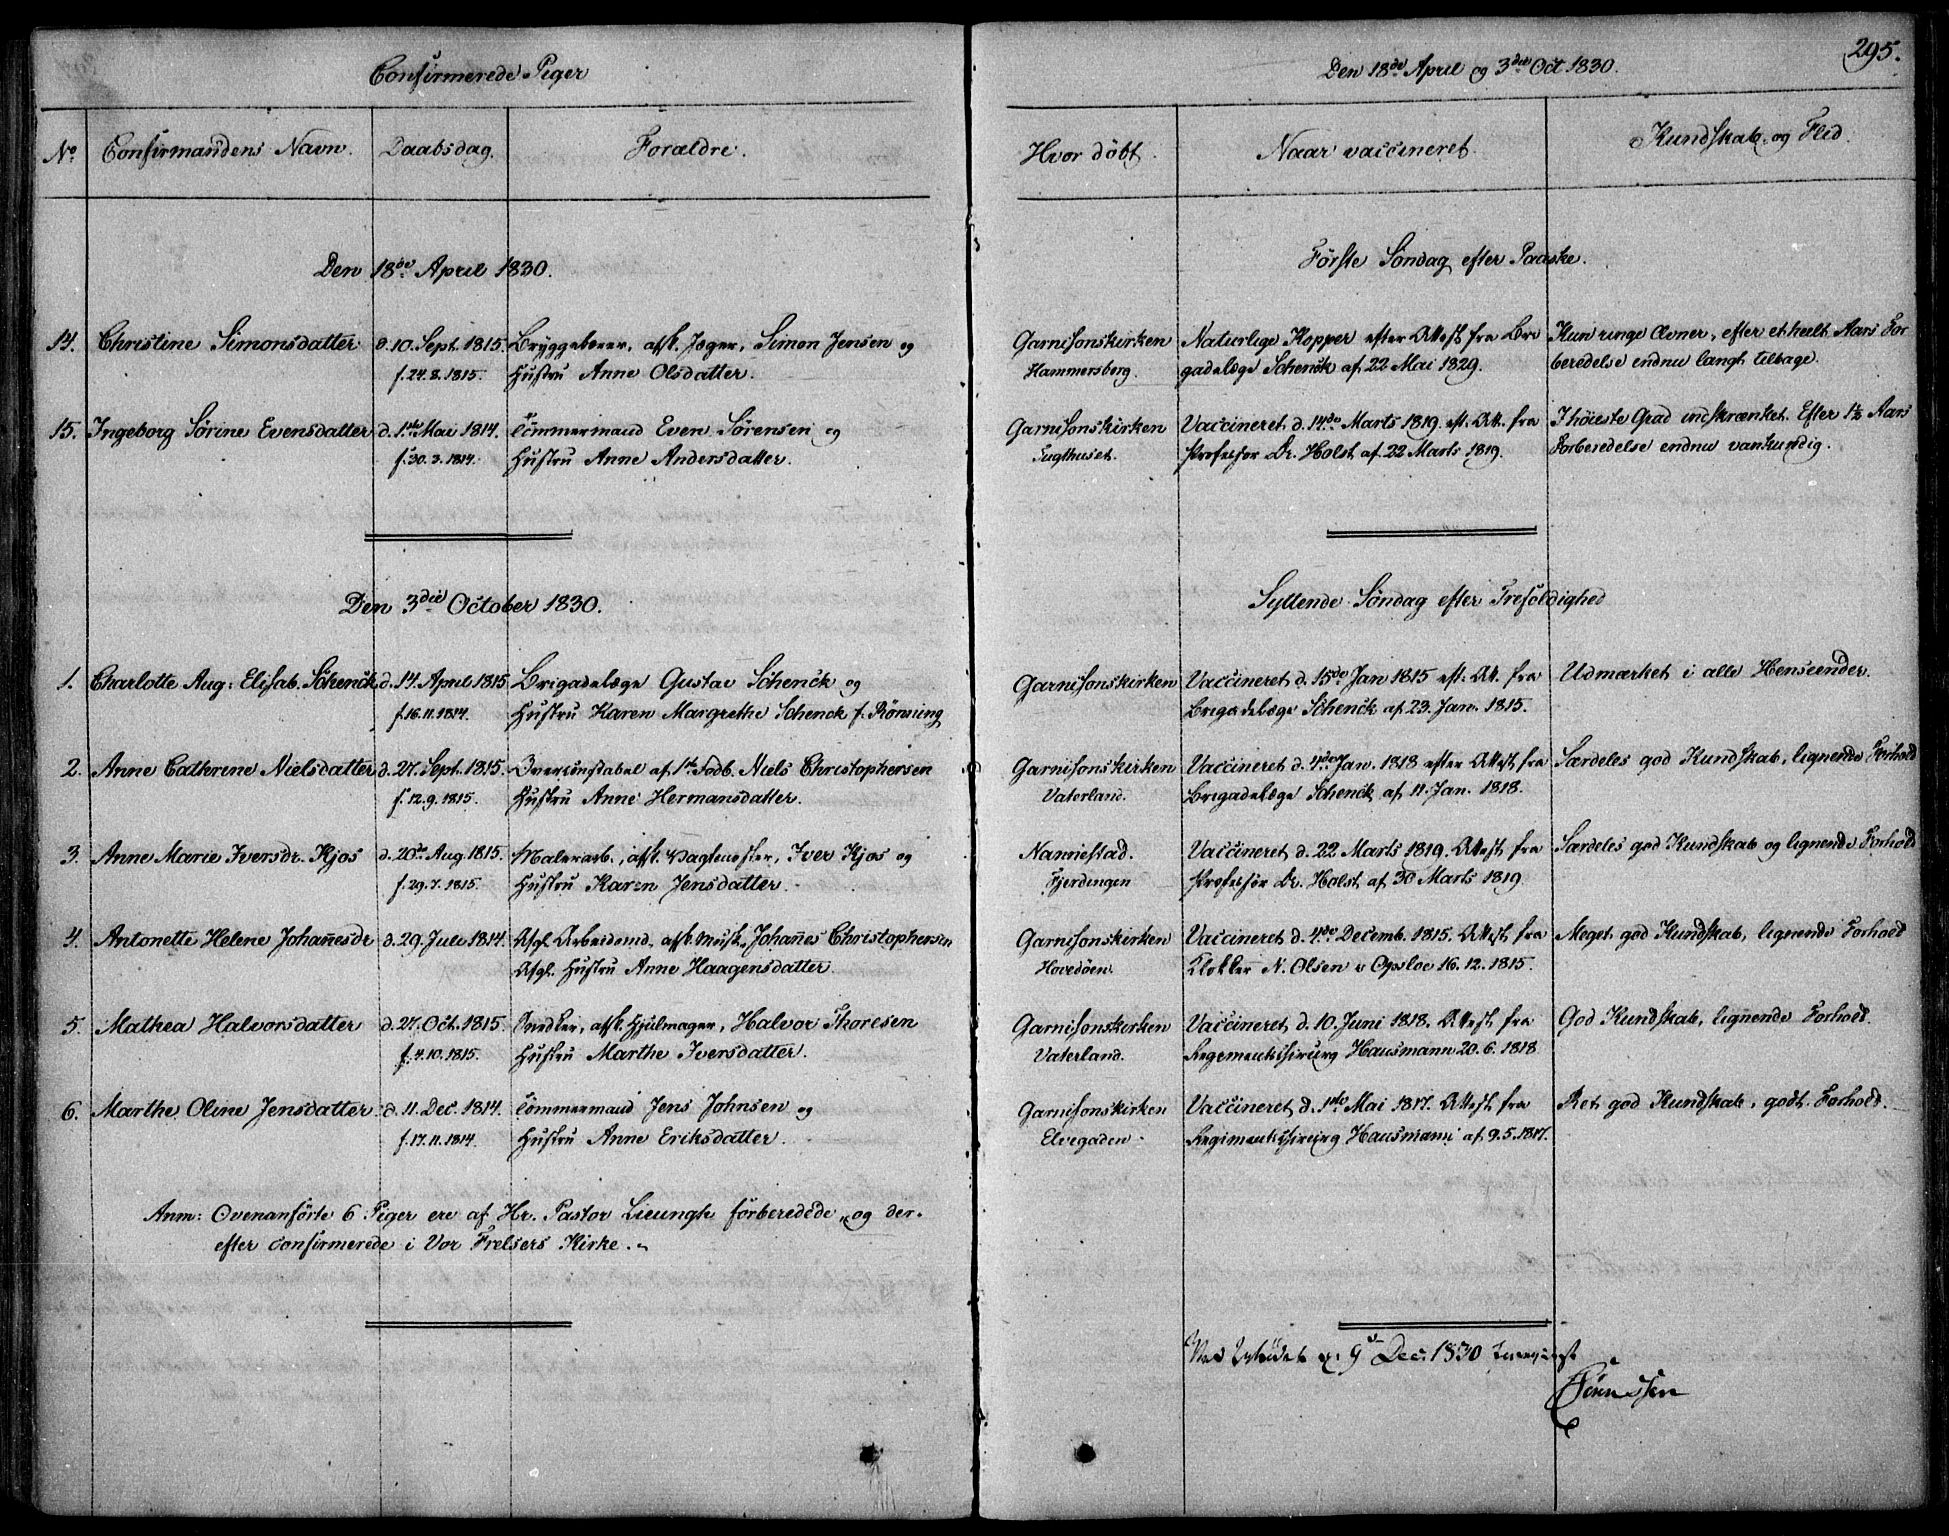 Confirmerede Piger
Den 18de April og 3die Oct 1830.
295.
No
Confirmandens Navn.
Daabsdag.
Forældre.
Hvor döbt.
Naar vaccineret.
Kundskab og Flid.
Den 18de April 1830.
Förste Söndag efter Paaske.
14. Christine Simonsdatter d. 10. Sept. 1815. Bryggebærer, afsk. Jæger, Simen Jensen og
f. 24.8.1815. Hustru Anne Olsdatter.
Garnisonskirken Naturlige Kopper efter Attest fra Bri Kun ringe Evner, efter et heelt Aars For
Hammersborg. gadelæge Schenck af 22 Mai 1829. beredelse endnu langt tilbage.
15. Ingeborg Sörine Evensdatter d. 1ste Mai 1814. Tömmermand Even Sörensen og
f. 30.3.1814. Hustru Anne Andersdatter.
Garnisonskirken Vaccineret d. 14de Marts 1819. eft. Att. fra I höieste Grad indskrænket. Efter 1½ Aars
Tugthuset. Professor Dr. Holst af 22 Marts 1819. Forberedelse endnu vankundig.
Den 3die October 1830.
Syttende Söndag efter Trefoldighed
1. Charlotte Aug: Elisab. Schenck d. 14. April 1815 Brigadelæge Gustav Schenck og
f. 16.11.1814. Hustru Karen Margrethe Schenck f. Rönning
Garnisonskirken Vaccineret d. 15de Jan 1815 eft. Att. fra Udmærket i alle Henseender.
Brigadelæge Schenck af 23. Jan. 1815.
2. Anne Cathrine Nielsdatter d. 27. Sept. 1815. Overconstabel af 1ste Fodb. Niels Christophersen
f. 12.9.1815. Hustru Anne Hermansdatter.
Garnisonskirken Vaccineret d. 4de Jan. 1818 efter Attest fra Særdeles god Kundskab, lignende Forhold
Vaterland. Brigadelæge Schenck af 11. Jan. 1818.
3. Anne Marie Iversdr. Kjos d. 20de Aug. 1815. Malerarb., afsk. Vagtmester, Iver Kjos og
f. 29.7.1815. Hustru Karen Jensdatter.
Nannestad. Vaccineret d. 22 Marts 1819. Attest fra Særdeles god Kundskab og lignende Forhold
Fjerdingen Professor Dr. Holst af 30 Marts 1819.
4. Antonette Helene Johañesdr d. 29. Juli 1814. Afgl. Arbeidsmd. afsk. Musk. Johañes Christophersen
Afgl. Hustru Anne Haagensdatter.
Garnisonskirken Vaccineret d. 4de Decemb. 1815. Attest fra Meget god Kundskab, lignende Forhold
Hovedöen. Klokker N. Olsen i Opsloe 16.12.1815.
5. Mathea Halvorsdatter d. 27. Oct. 1815. Snedker, afsk. Hjulmager, Halvor Thoresen
f. 4.10.1815. Hustru Marthe Iversdatter.
Garnisonskirken Vaccineret d. 10. Juni 1818. Attest fra God Kundskab, lignende Forhold.
Vaterland. Regimentschirurg Hausmann 20.6.1818
6. Marthe Oline Jensdatter d. 11. Dec. 1814. Tömmermand Jens Johnsen og
f. 17.11.1814. Hustru Anne Eriksdatter.
Garnisonskirken Vaccineret d. 1ste Mai 1817. Attest fra Ret god Kundskab, godt Forhold.
Elvegaden. Regimentschirurg Hausmann af 9.5.1817.
Anm: Ovenanförte 6 Piger ere af Hr. Pastor Lieungh forberedede, og der-
efter confirmerede i Vor Frelsers Kirke.
9 Dec. 1830